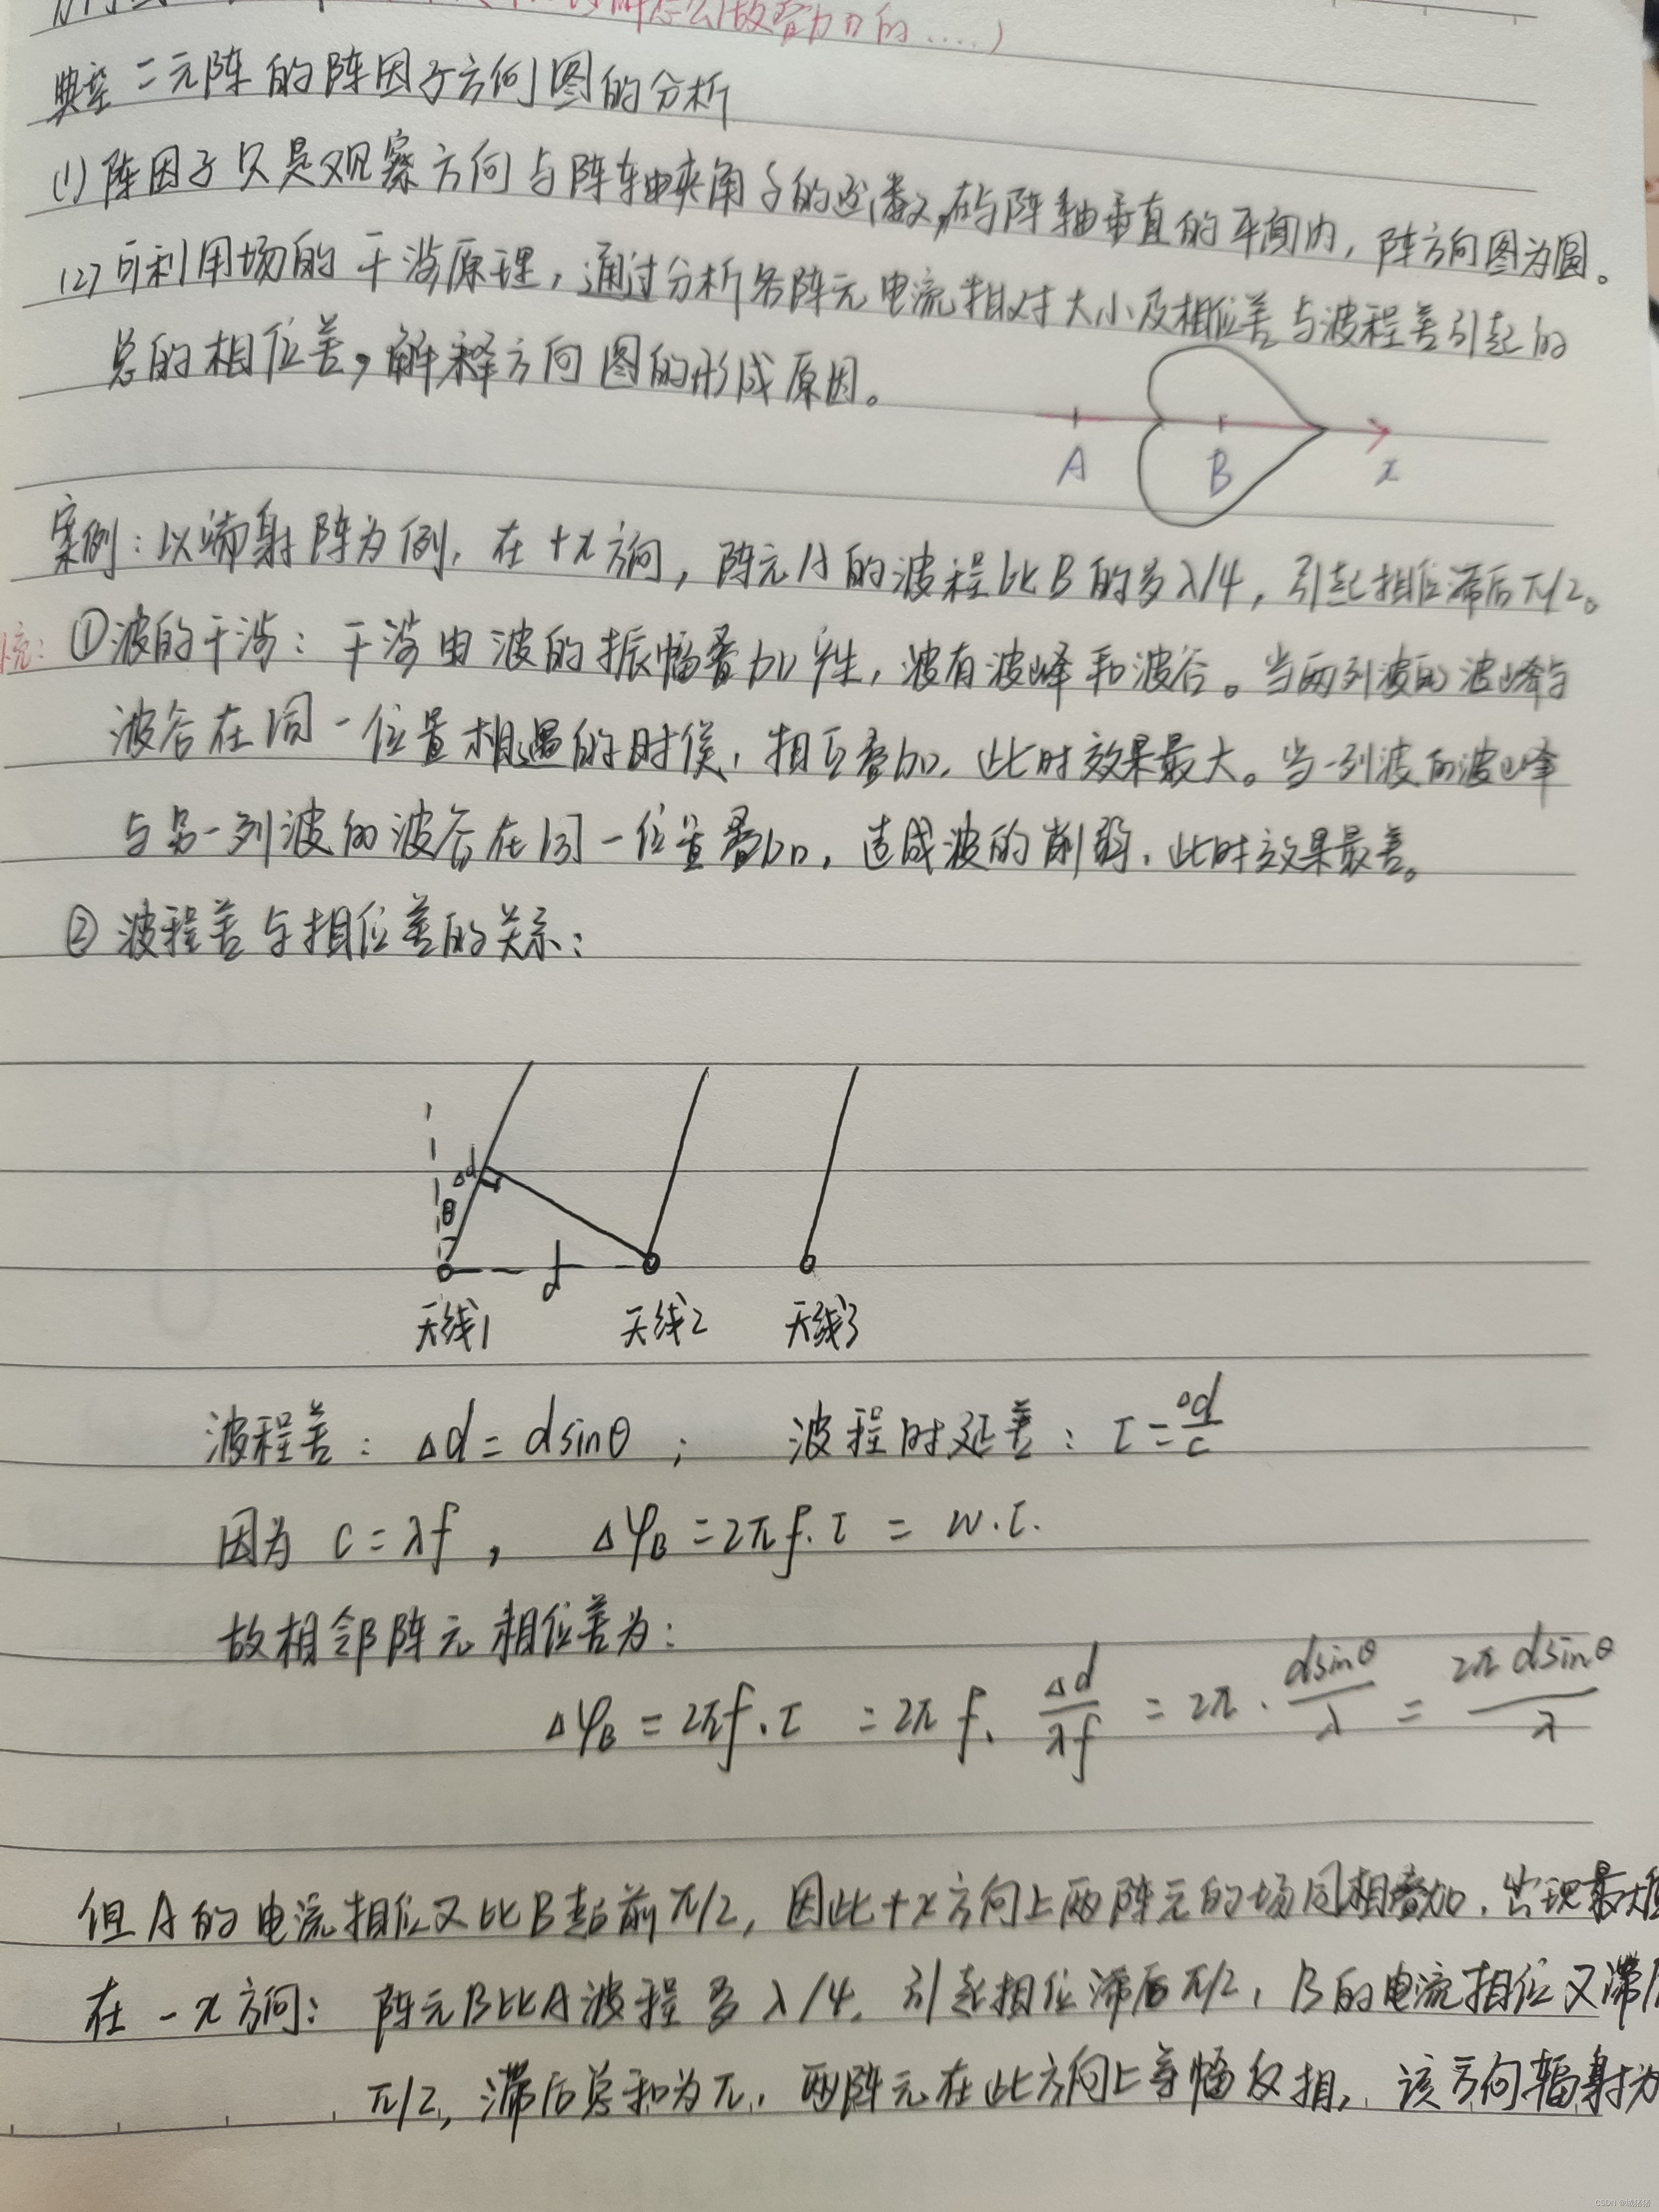 解怎么做智力口的....)
典型二元阵的阵因子方向图的分析
(1)阵因子只是观察方向与阵轴夹角δ的函数,在与阵轴垂直的平面内,阵方向图为圆。
(2)可利用场的干涉原理,通过分析各阵元电流相对大小及相位差与波程差引起的
总的相位差,解释方向图的形成原因。
A B x
案例:以端射阵为例,在+x方向,阵元A的波程比B的多λ/4,引起相位滞后π/2。
充:①波的干涉:干涉由波的振幅叠加产生,波有波峰和波谷。当两列波的波峰与
波谷在同一位置相遇的时侯,相互叠加,此时效果最大。当一列波的波峰
与另一列波的波谷在同一位置叠加,造成波的削弱,此时效果最差。
②波程差与相位差的关系:
Δd
θ
d
天线1 天线2 天线3
波程差:Δd=dsinθ; 波程时延差:τ=Δd/c
因为 c=λf, Δφ_B=2πf·τ=w·τ.
故相邻阵元相位差为:
Δφ_B=2πf·τ=2πf·Δd/λf=2π·dsinθ/λ=2πdsinθ/λ
但A的电流相位又比B超前π/2,因此+x方向上两阵元的场同相叠加,出现最大值
在-x方向:阵元B比A波程多λ/4,引起相位滞后π/2,B的电流相位又滞后
π/2,滞后总和为π,两阵元在此方向上等幅反相,该方向辐射为